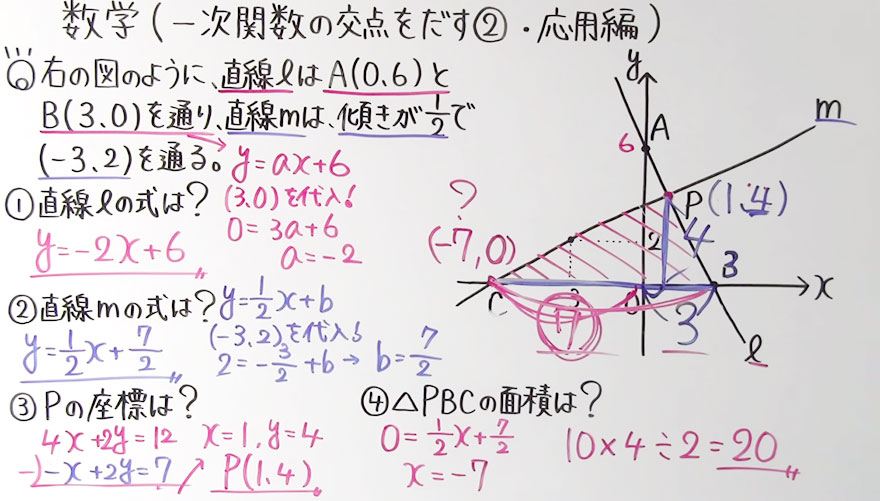 数学(一次関数の交点をだす②・応用編)
右の図のように、直線ℓはA(0,6)と
B(3,0)を通り、直線mは、傾きが1/2で
(-3,2)を通る。
y=ax+6
①直線ℓの式は?
(3,0)を代入!
0=3a+6
a=-2
y=-2x+6
②直線mの式は?
y=1/2x+b
(-3,2)を代入!
2=-3/2+b→ b=7/2
y=1/2x+7/2
③Pの座標は?
4x+2y=12
-)-x+2y=7
x=1,y=4
P(1,4)
④△PBCの面積は?
0=1/2x+7/2
x=-7
10×4÷2=20
y
m
6 A
P(1,4)
?
(-7,0)
2
4
B
x
C
7
3
ℓ